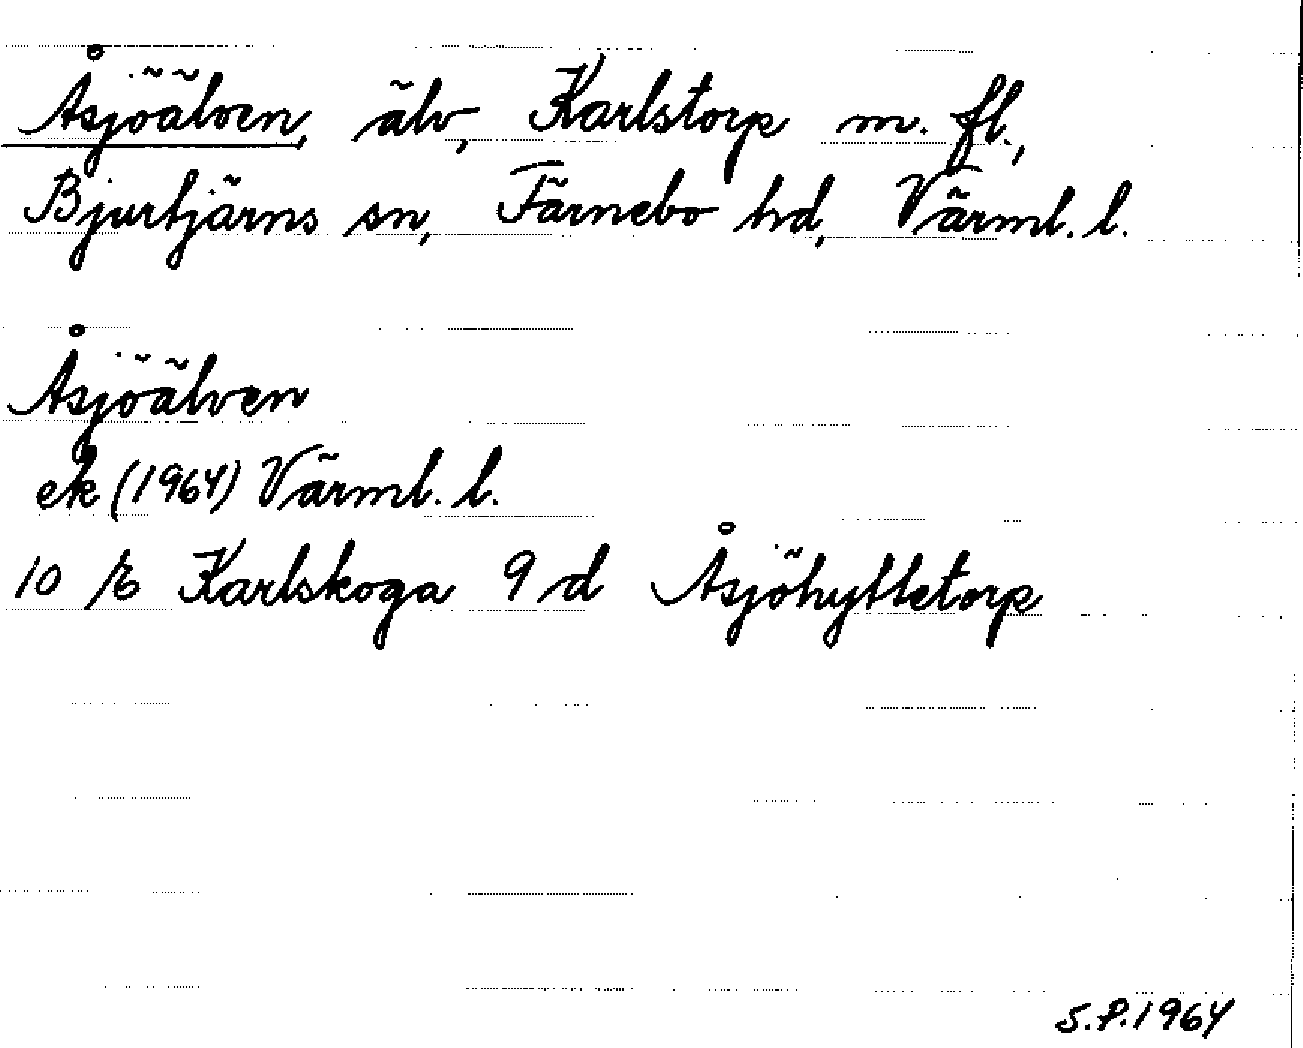 Åsjöälven, älv, Karlstorp m. fl.,
Bjurtjärns sn, Färnebo hd, Värml. l.
Åsjöälven
ek (1964) Värml. l.
10 E Karlskoga 9 d Åsjöhyttetorp
S.P. 1964